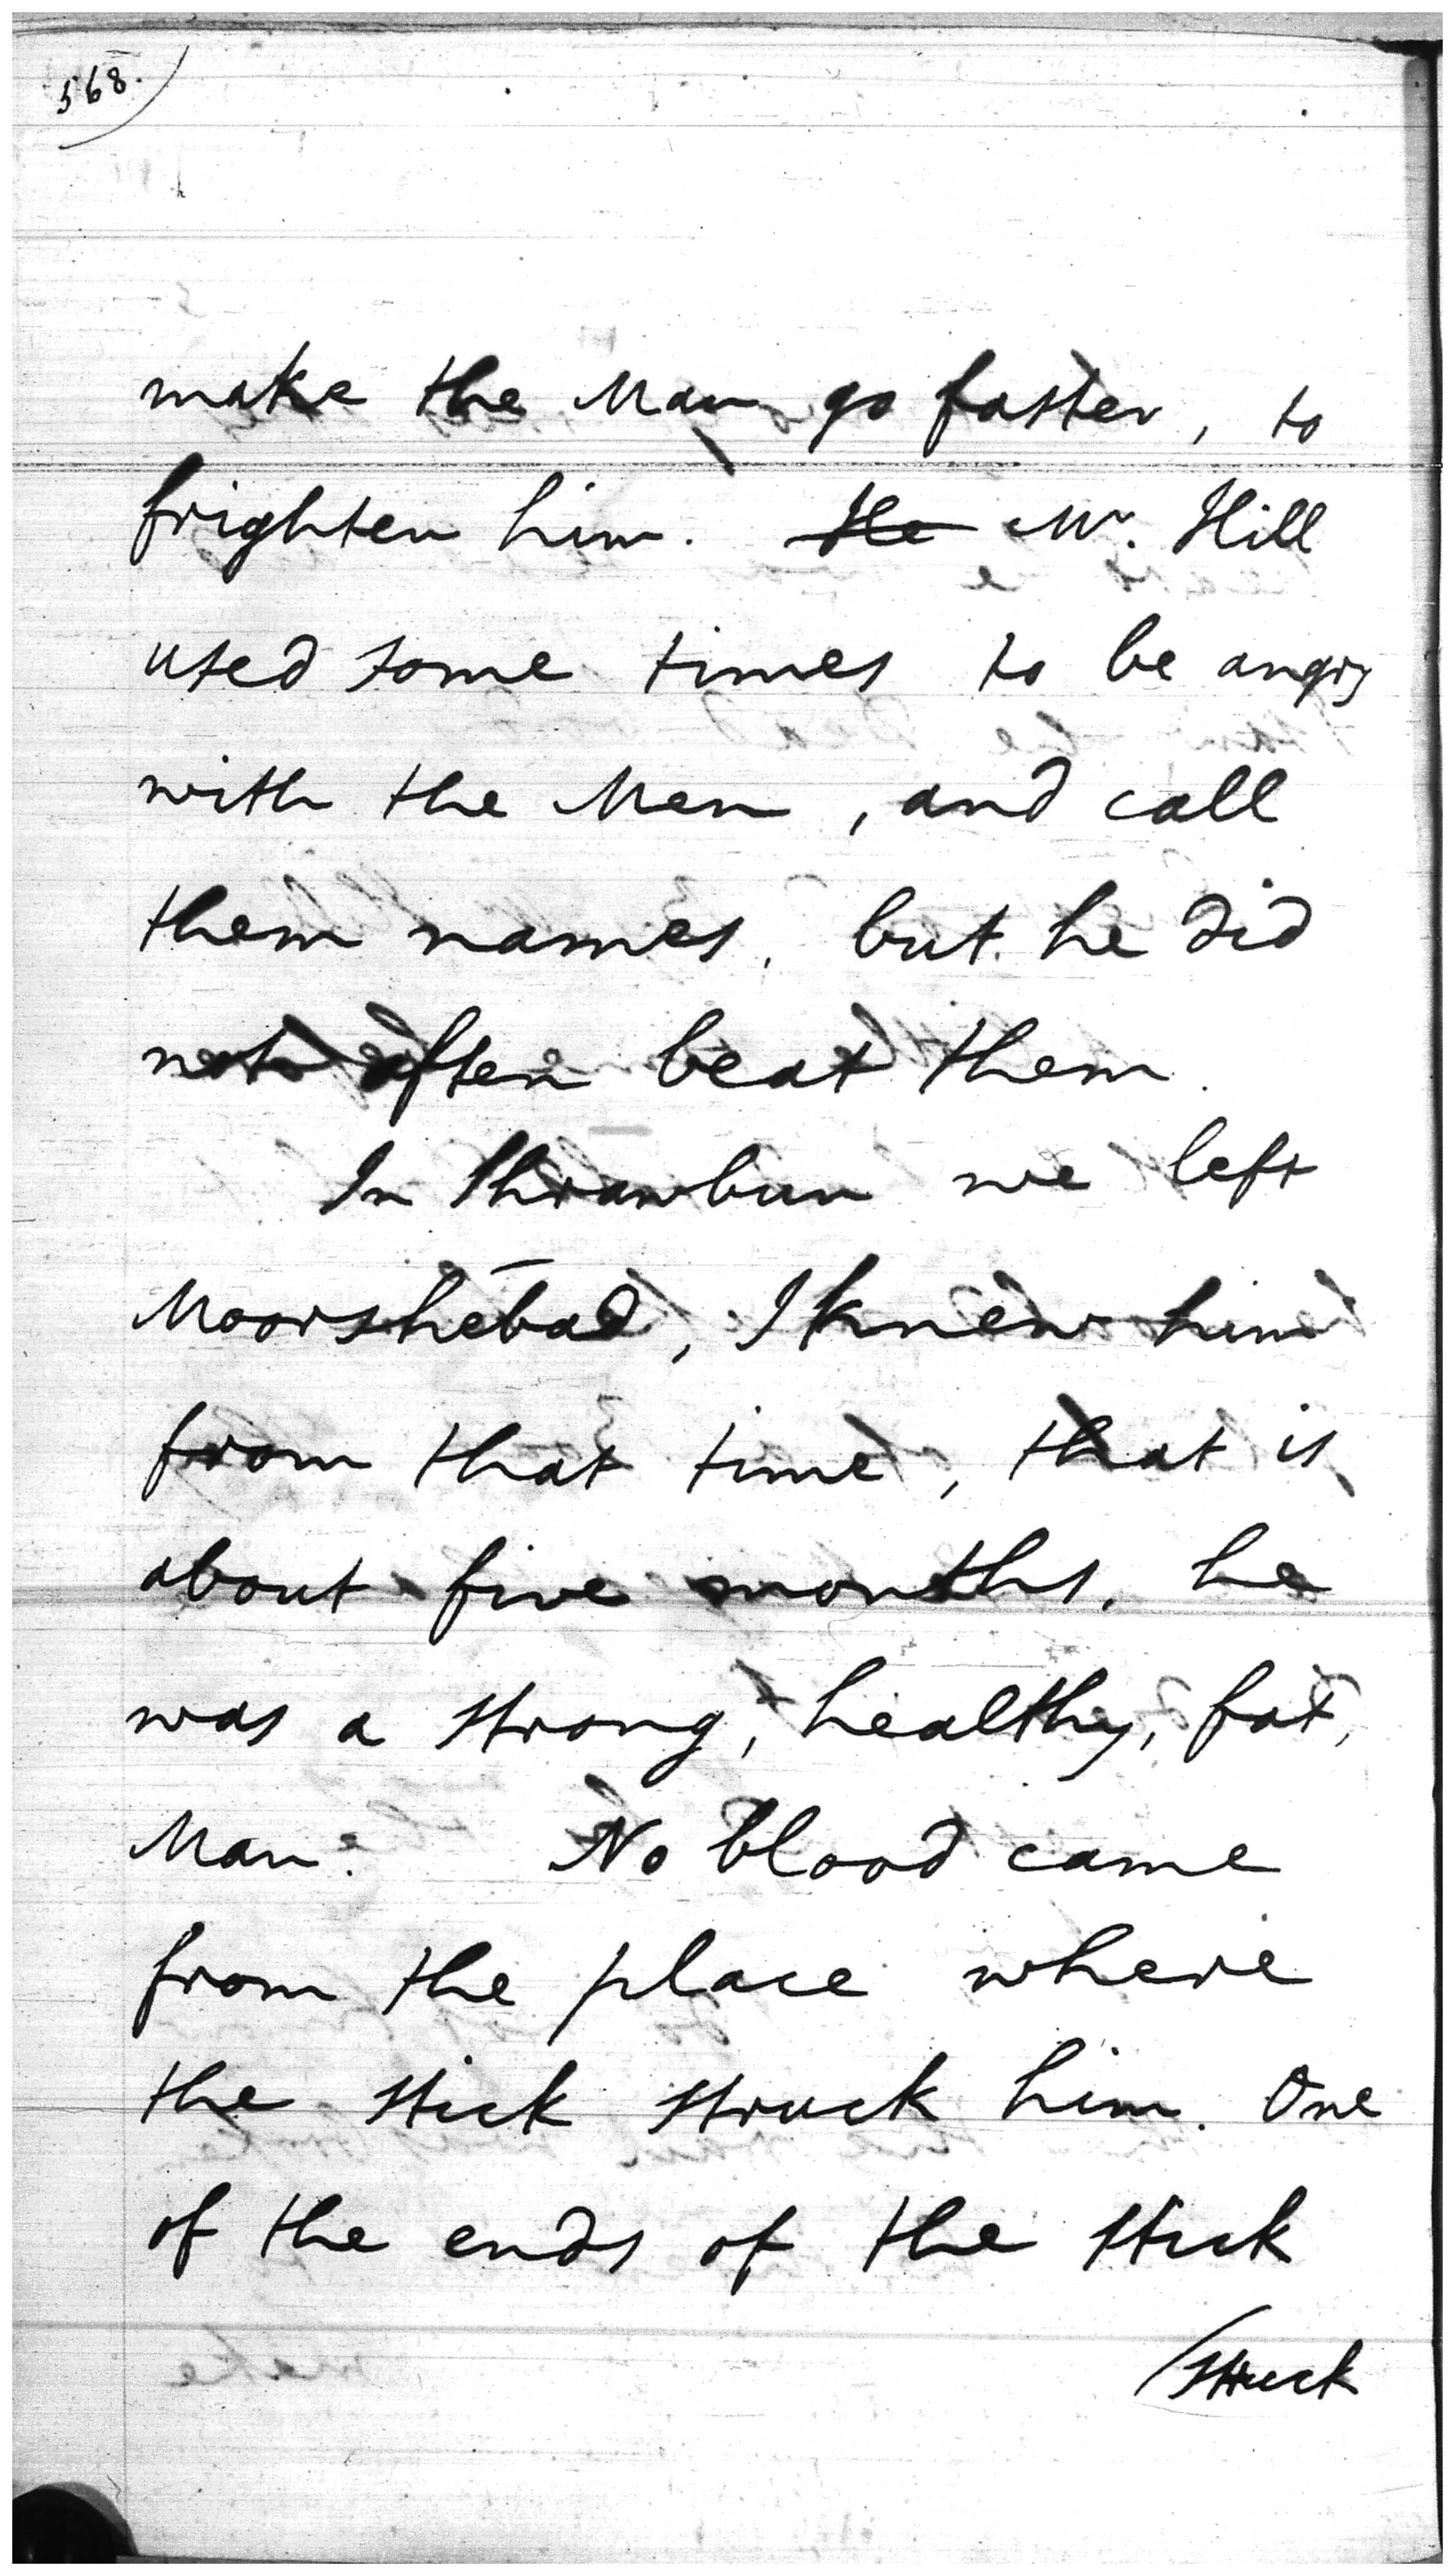 568.
make the Man go faster, to
frighten him. He Mr. Hill
used some times to be angry
with the Men, and call
them names, but he did
not often beat them.
In Shrawbun we left
Moorshebad, I knew him
from that time, that is
about five months, he
was a strong, healthy, fat,
Man. No blood came
from the place where
the stick struck him. One
of the ends of the stick
/struck